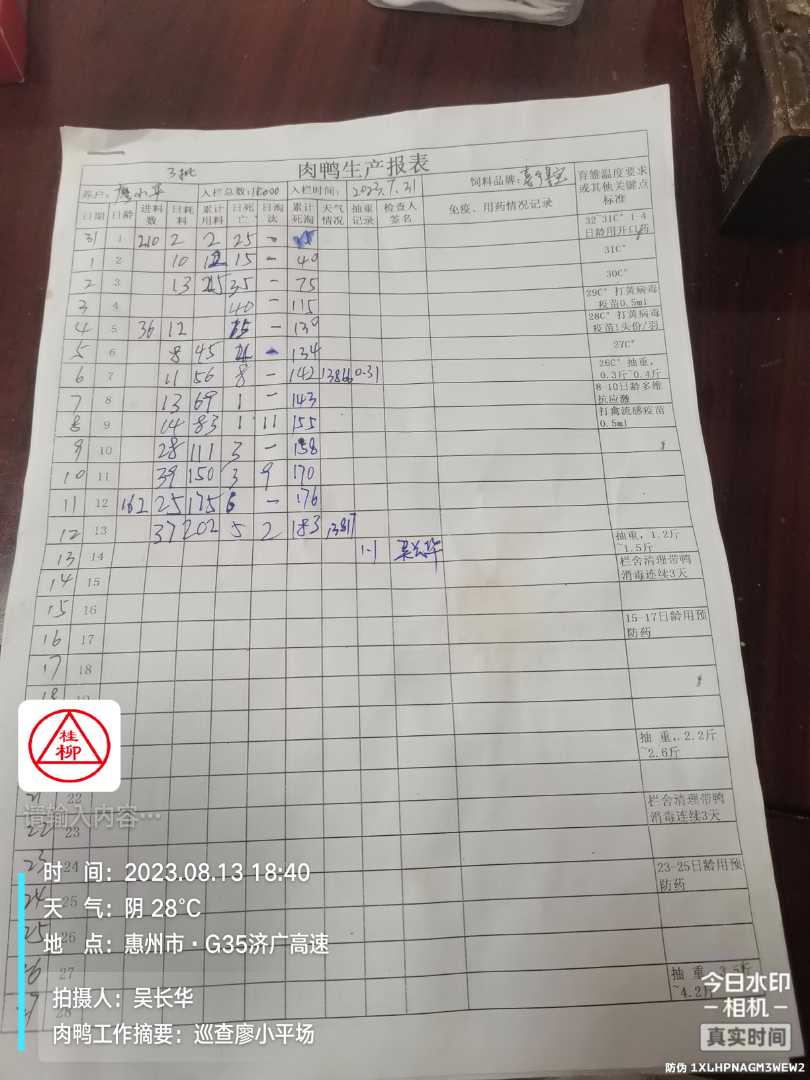 3批 肉鸭生产报表
客户: 廖小平 入栏总数: 入栏时间: 2023.7.31 饲料品牌: 育雏温度要求或其他关键点标准
日期 日龄 进料数 日耗料 累计用料 日死亡 日淘汰 累计死淘 天气情况 抽重记录 检查人签名 免疫、用药情况记录
31 1 210 2 2 25 - 32~31C° 1-4日龄用开口药
1 2 10 12 15 - 40 31C°
2 3 13 25 35 - 75 30C°
3 4 40 - 115 29C° 打黄病毒疫苗0.5ml
4 5 36 12 15 - 130 28C° 打黄病毒疫苗1头份/羽
5 6 8 45 - 134 27C°
6 7 11 56 8 - 142 13866 0.31 26C° 抽重,0.3斤~0.4斤
7 8 13 69 1 - 143 8-10日龄多维抗应激
8 9 14 83 1 11 155 打禽流感疫苗0.5ml
9 10 28 111 3 - 158
10 11 39 150 3 9 170
11 12 162 25 175 6 - 176
12 13 37 202 5 2 183 13817
13 14 1.1 吴长华 抽重,1.2斤~1.5斤
14 15 栏舍清理带鸭消毒连续3天
15 16
16 17 15-17日龄用预防药
17 18
18 19
抽重,2.2斤~2.6斤
21 22 栏舍清理带鸭消毒连续3天
22 23
23 24 23-25日龄用预防药
24 25
25 26
26 27
27 28 抽重,3.5斤~4.2斤
桂柳
请输入内容...
时 间: 2023.08.13 18:40
天 气: 阴 28°C
地 点: 惠州市·G35济广高速
拍摄人: 吴长华
肉鸭工作摘要: 巡查廖小平场
今日水印
-相机-
真实时间
防伪 1XLHPNAGM3WEW2